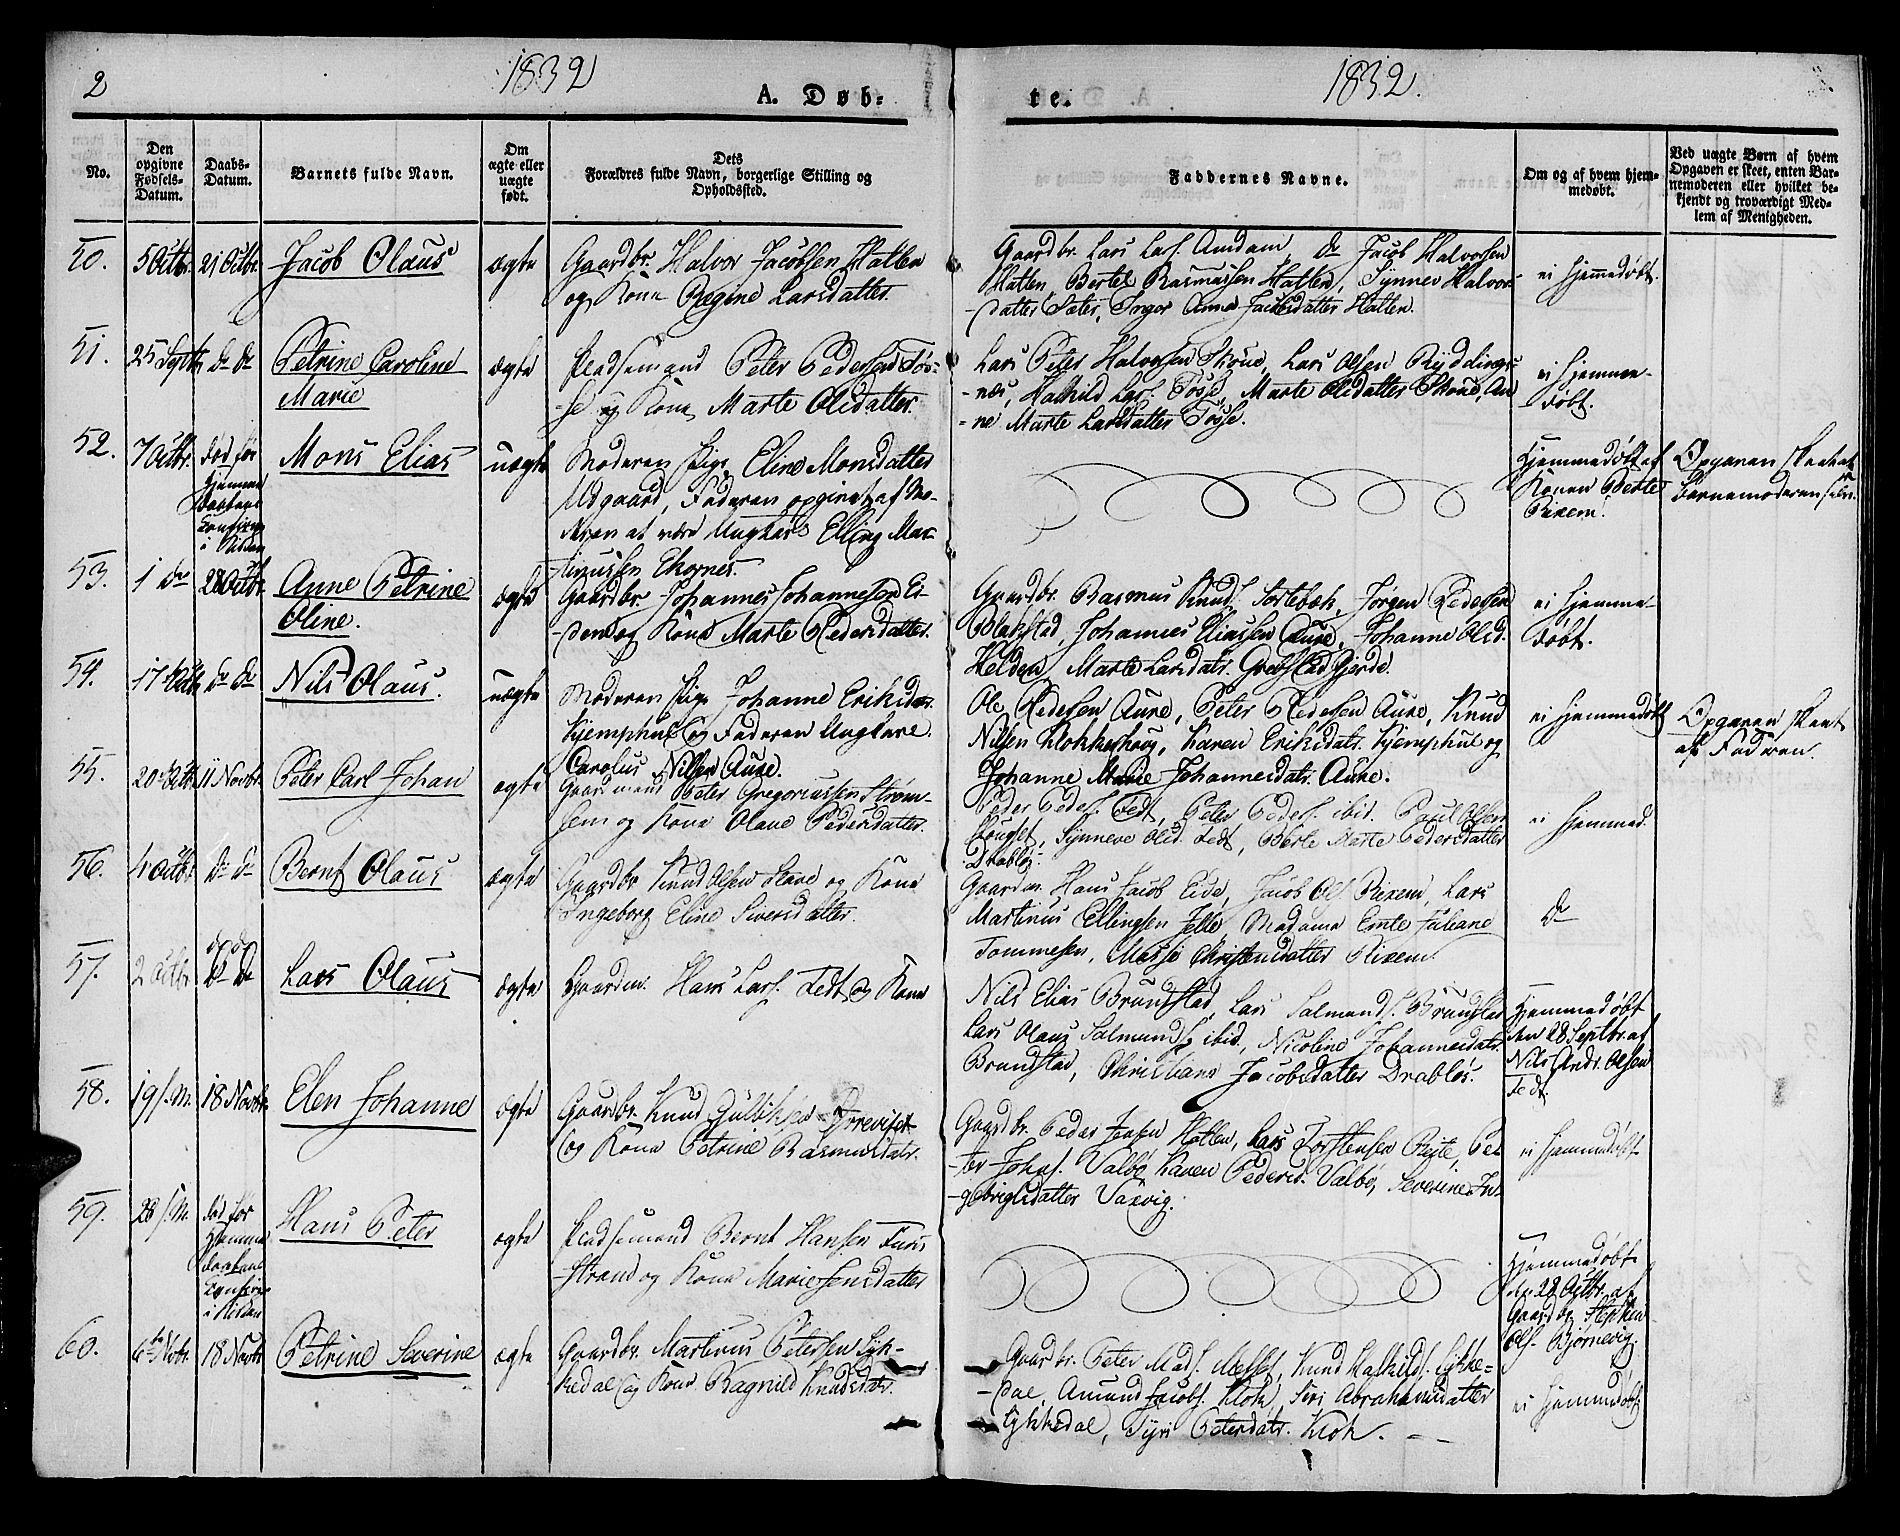 2
1832
A. Døb-
te.
1832.
No.
Den opgivne Fødsels-Datum.
Daabs-Datum.
Barnets fulde Navn.
Om ægte eller uægte født.
Dets
Forældres fulde Navn, borgerlige Stilling og
Opholdssted.
Faddernes Navne.
Om og af hvem hjem-
medøbt.
Ved uægte Børn af hvem
Opgaven er skeet, enten Bar-
nemoderen eller hvilket be-
kjendt og troværdigt Med-
lem af Menigheden.
50.
5 Octbr.
21 Octbr.
Jacob Olaus
ægte
Gaardbr. Halvor Jacobsen Hatlen
og Kone Regine Larsdatter.
Gaardbr. Lars Lars. Amdam, do Jacob Halvorsen
Hatlen, Bertel Rasmussen Hatlen, Synnev Halvor-
datter Sæter, Inger Anna Jacobsdatter Hatlen.
ei hjemmedøbt.
51.
25 Septbr
do do
Petrine Caroline
Marie
ægte
Pladsemand Peter Pedersen Tøs-
-se og Kone Marte Olsdatter.
Lars Peter Halvorsen Skoue, Lars Olsen Ryddings-
-næs, Halkild Lars. Tøsse, Marte Olsdatter Skoue, An
-ne Marte Larsdatter Tøsse.
ei hjemme-
døbt.
52.
7 Octbr.
død før
Hjemme
daabens
Confirm
i Kirken
Mons Elias
uægte
Moderen Pige Eline Monsdatter
Udgaard, Faderen opgivet af Mo-
deren at være Ungkarl Elling Mar-
tinussen Ekornes.
Hjemmedøbt af
Konen Berte
Rixem.
Opgaven skeet af
Barnemoderen selv.
53.
1 do
28 Octbr.
Anne Petrine
Oline.
ægte
Gaardbr. Johannes Johannesen Ei-
dem og Kone Marte Pedersdatter.
Gaardbr. Rasmus Knuds. Sortebæk, Jørgen Pedersen
Blakstad, Johannes Eliassen Aure, Johanne Olsd.
Helden, Marte Larsdatr. Gjerde.
ei hjemme-
døbt.
54.
17 Octb.
do do
Nils Olaus.
uægte
Moderen Pige Johanne Eriksdr.
Kjemphul og Faderen Ungkarl
Carolus Nilsen Aure.
Ole Pedersen Aure, Peter Pedersen Aure, Knud
Nilsen Klokkerhoug, Karen Eriksdatr. Kjemphul og
Johanne Marie Johannesdatr. Aure.
ei hjemmedøbt
Opgaven skeet
af Faderen.
55.
20 Octb.
11 Novbr.
Peter Carl Johan
ægte
Gaardmand Peter Gregoriussen Strøm-
hem og Kone Olave Pedersdatter.
Peder Peders. Fedt, Peter Peders. ibid. Poul Olsen
Synneve Olsd. Fedt, Berte Marte Pedersdatter
Drabløs.
ei hjemmed.
56.
4 Octbr.
do do
Bernt Olaus
ægte
Gaardbr Knud Olsen Lave og Kone
Ingeborg Eline Siversdatter.
Gaardm. Hans Jacob Eide, Jacob Ols. Rixem, Lars
Martinus Ellingsen Jelle, Madame Juliane
Tommesen, Massi Christensdatter Rixem.
do
57.
2 Octbr
do do
do do
Lars Olaus
ægte
Gaardm. Hans Lars. Fedt og Kone
Nils Elias Brundstad, Lars Salmunds. Brundstad
Lars Olaus Salmunds. ibid., Nicoline Johannesdatr.
Brundstad, Christiane Jacobsdatter Drabløs.
Hjemmedøbt
den 28 Septbr. af
Nils Andr. Olsen
Fedt.
58.
19 f. M.
18 Novbr.
Elen Johanne
ægte
Gaardbr. Knud Gulliksen Ørreviset
og Kone Petrine Rasmusdatr.
Gaardbr. Peder Jensen Hatlen, Lars Torstensen Røite, Pet
-ter Johns. Valbø, Karen Pedersd. Valbø, Severine In-
-gebrigtsdatter Vaxvig.
ei hjemmedøbt
59.
28 f. M.
død før
Hjemme
daabens
Confirm
i Kirken
Hans Peter
ægte
Pladsemand Bernt Hansen Fure
-strand og Kone Marie Jensdatter
Hjemmedøbt
den 28 Octbr. af
Gaardbr. Stephen
Ols. Bjørnevig.
60.
6te Novbr.
18 Novbr
Petrine Severine
ægte
Gaardbr. Martinus Petersen Syk-
kedal og Kone Ragnild Knudsdatr.
Gaardbr. Peter Mads. Melset, Knud Halkilds. Sykke-
-dal, Amund Jacobs. Klok, Siri Abrahamsdatter
Sykkedal, Syri Petersdatr. Klok.
ei hjemmedøbt